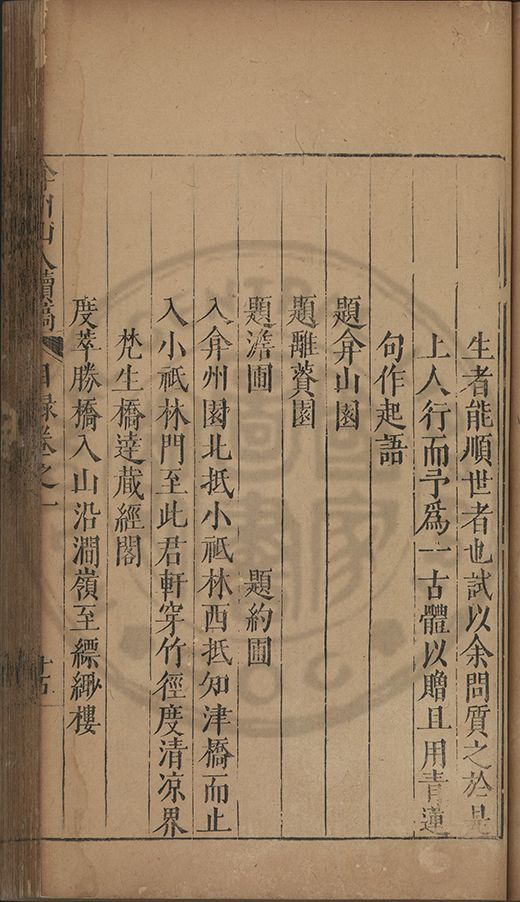 生者能順世者也試以余問質之於是
上人行而予爲一古體以贈且用青蓮
句作起語
題弇山園
題離薋園
題澹圃　題約圃
入弇州園北抵小祗林西抵知津橋而止
入小祗林門至此君軒穿竹徑度清凉界
梵生橋達藏經閣
度萃勝橋入山沿澗嶺至縹緲樓
弇州山人續稿　目録卷之一